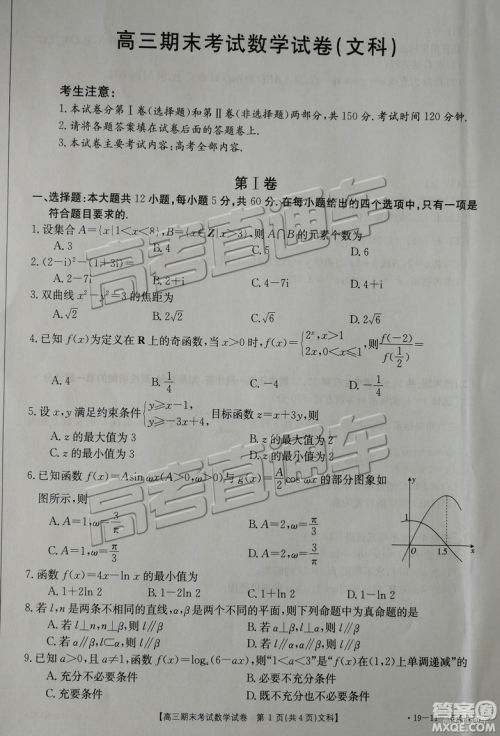 高三期末考试数学试卷(文科)
考生注意:
1.本试卷分第Ⅰ卷(选择题)和第Ⅱ卷(非选择题)两部分,共150分.考试时间120分钟.
2.请将各题答案填在试卷后面的答题卷上.
3.本试卷主要考试内容:高考全部内容.
第Ⅰ卷
一、选择题:本大题共12小题,每小题5分,共60分.在每小题给出的四个选项中,只有一项是
符合题目要求的.
1.设集合A={x|1<x<8},B={x∈Z|x>3},则A∩B的元素个数为
A.3 B.4 C.5 D.6
2.(2-i)²-(1+3i)=
A.2-7i B.2+i C.4-7i D.4+i
3.双曲线x²-y²=3的焦距为
A.√2 B.2√2 C.√6 D.2√6
4.已知f(x)为定义在R上的奇函数,当x>0时,f(x)={2ˣ,x>1 2x,0<x≤1,则f(-2)/f(1/2)=
A.4 B.1/4 C.-4 D.-1/4
5.设x,y满足约束条件{y≥x-1, y≥-2x-4, 目标函数z=x+3y,则
A.z的最大值为3 B.z的最大值为2
C.z的最小值为3 D.z的最小值为2
6.已知函数f(x)=Asin ωx(A>0,ω>0)与g(x)=A/2 cos ωx的部分图象如
图所示,则
A.A=1,ω=3/π B.A=2,ω=π/3
C.A=1,ω=π/3 D.A=2,ω=3/π
y
1
O
1.5
x
7.函数f(x)=4x-ln x的最小值为
A.1+2ln 2 B.1-2ln 2 C.1+ln 2 D.1-ln 2
8.若l,n是两条不相同的直线,α,β是两个不同的平面,则下列命题中为真命题的是
A.若l⊥n,n⊥β,则l∥β B.若α⊥β,l⊥β,则l∥α
C.若α∥β,l⊂α,则l∥β D.若α∥β,l∥α,则l∥β
9.已知a>0,且a≠1,函数f(x)=logₐ(6-ax),则“1<a<3”是“f(x)在(1,2)上单调递减”的
A.充分不必要条件 B.必要不充分条件
C.充分必要条件 D.既不充分也不必要条件
【高三期末考试数学试卷 第1页(共4页)文科】
高考直通车
高考直通车